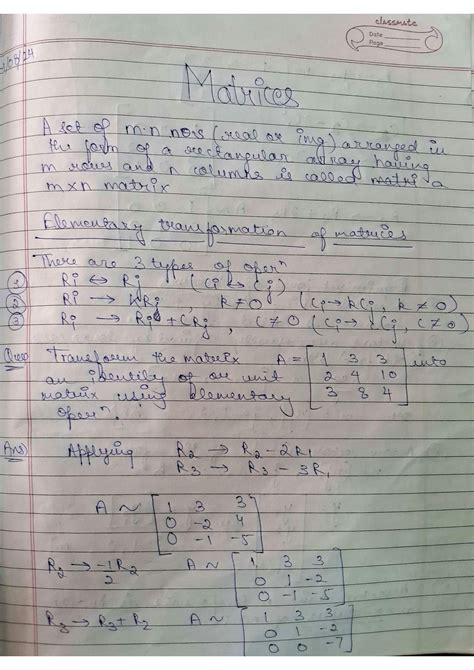 classmate
Date
Page
/08/24
Matrices
A set of m·n no's (real or img) arranged in
the form of a rectangular array having
m rows and n columns is called matrix a
m×n matrix
Elementary transformation of matrices
There are 3 types of operⁿ
① Ri ↔ Rj (Ci ↔ Cj)
② Ri → kRi, k≠0 (Ci → kCi, k ≠ 0)
③ Ri → Ri + CRj, C≠0 (Ci → Cj, C ≠ 0)
Ques) Transform the matrix A = [1 3 3] into
an identity of or unit [2 4 10]
matrix using elementary [3 8 4]
operⁿ.
Ans) Applying R2 → R2 - 2R1
R3 → R3 - 3R1
A ~ [1 3 3]
[0 -2 4]
[0 -1 -5]
R2 → -1/2 R2 A ~ [1 3 3]
[0 1 -2]
[0 -1 -5]
R3 → R3 + R2 A ~ [1 3 3]
[0 1 -2]
[0 0 -7]